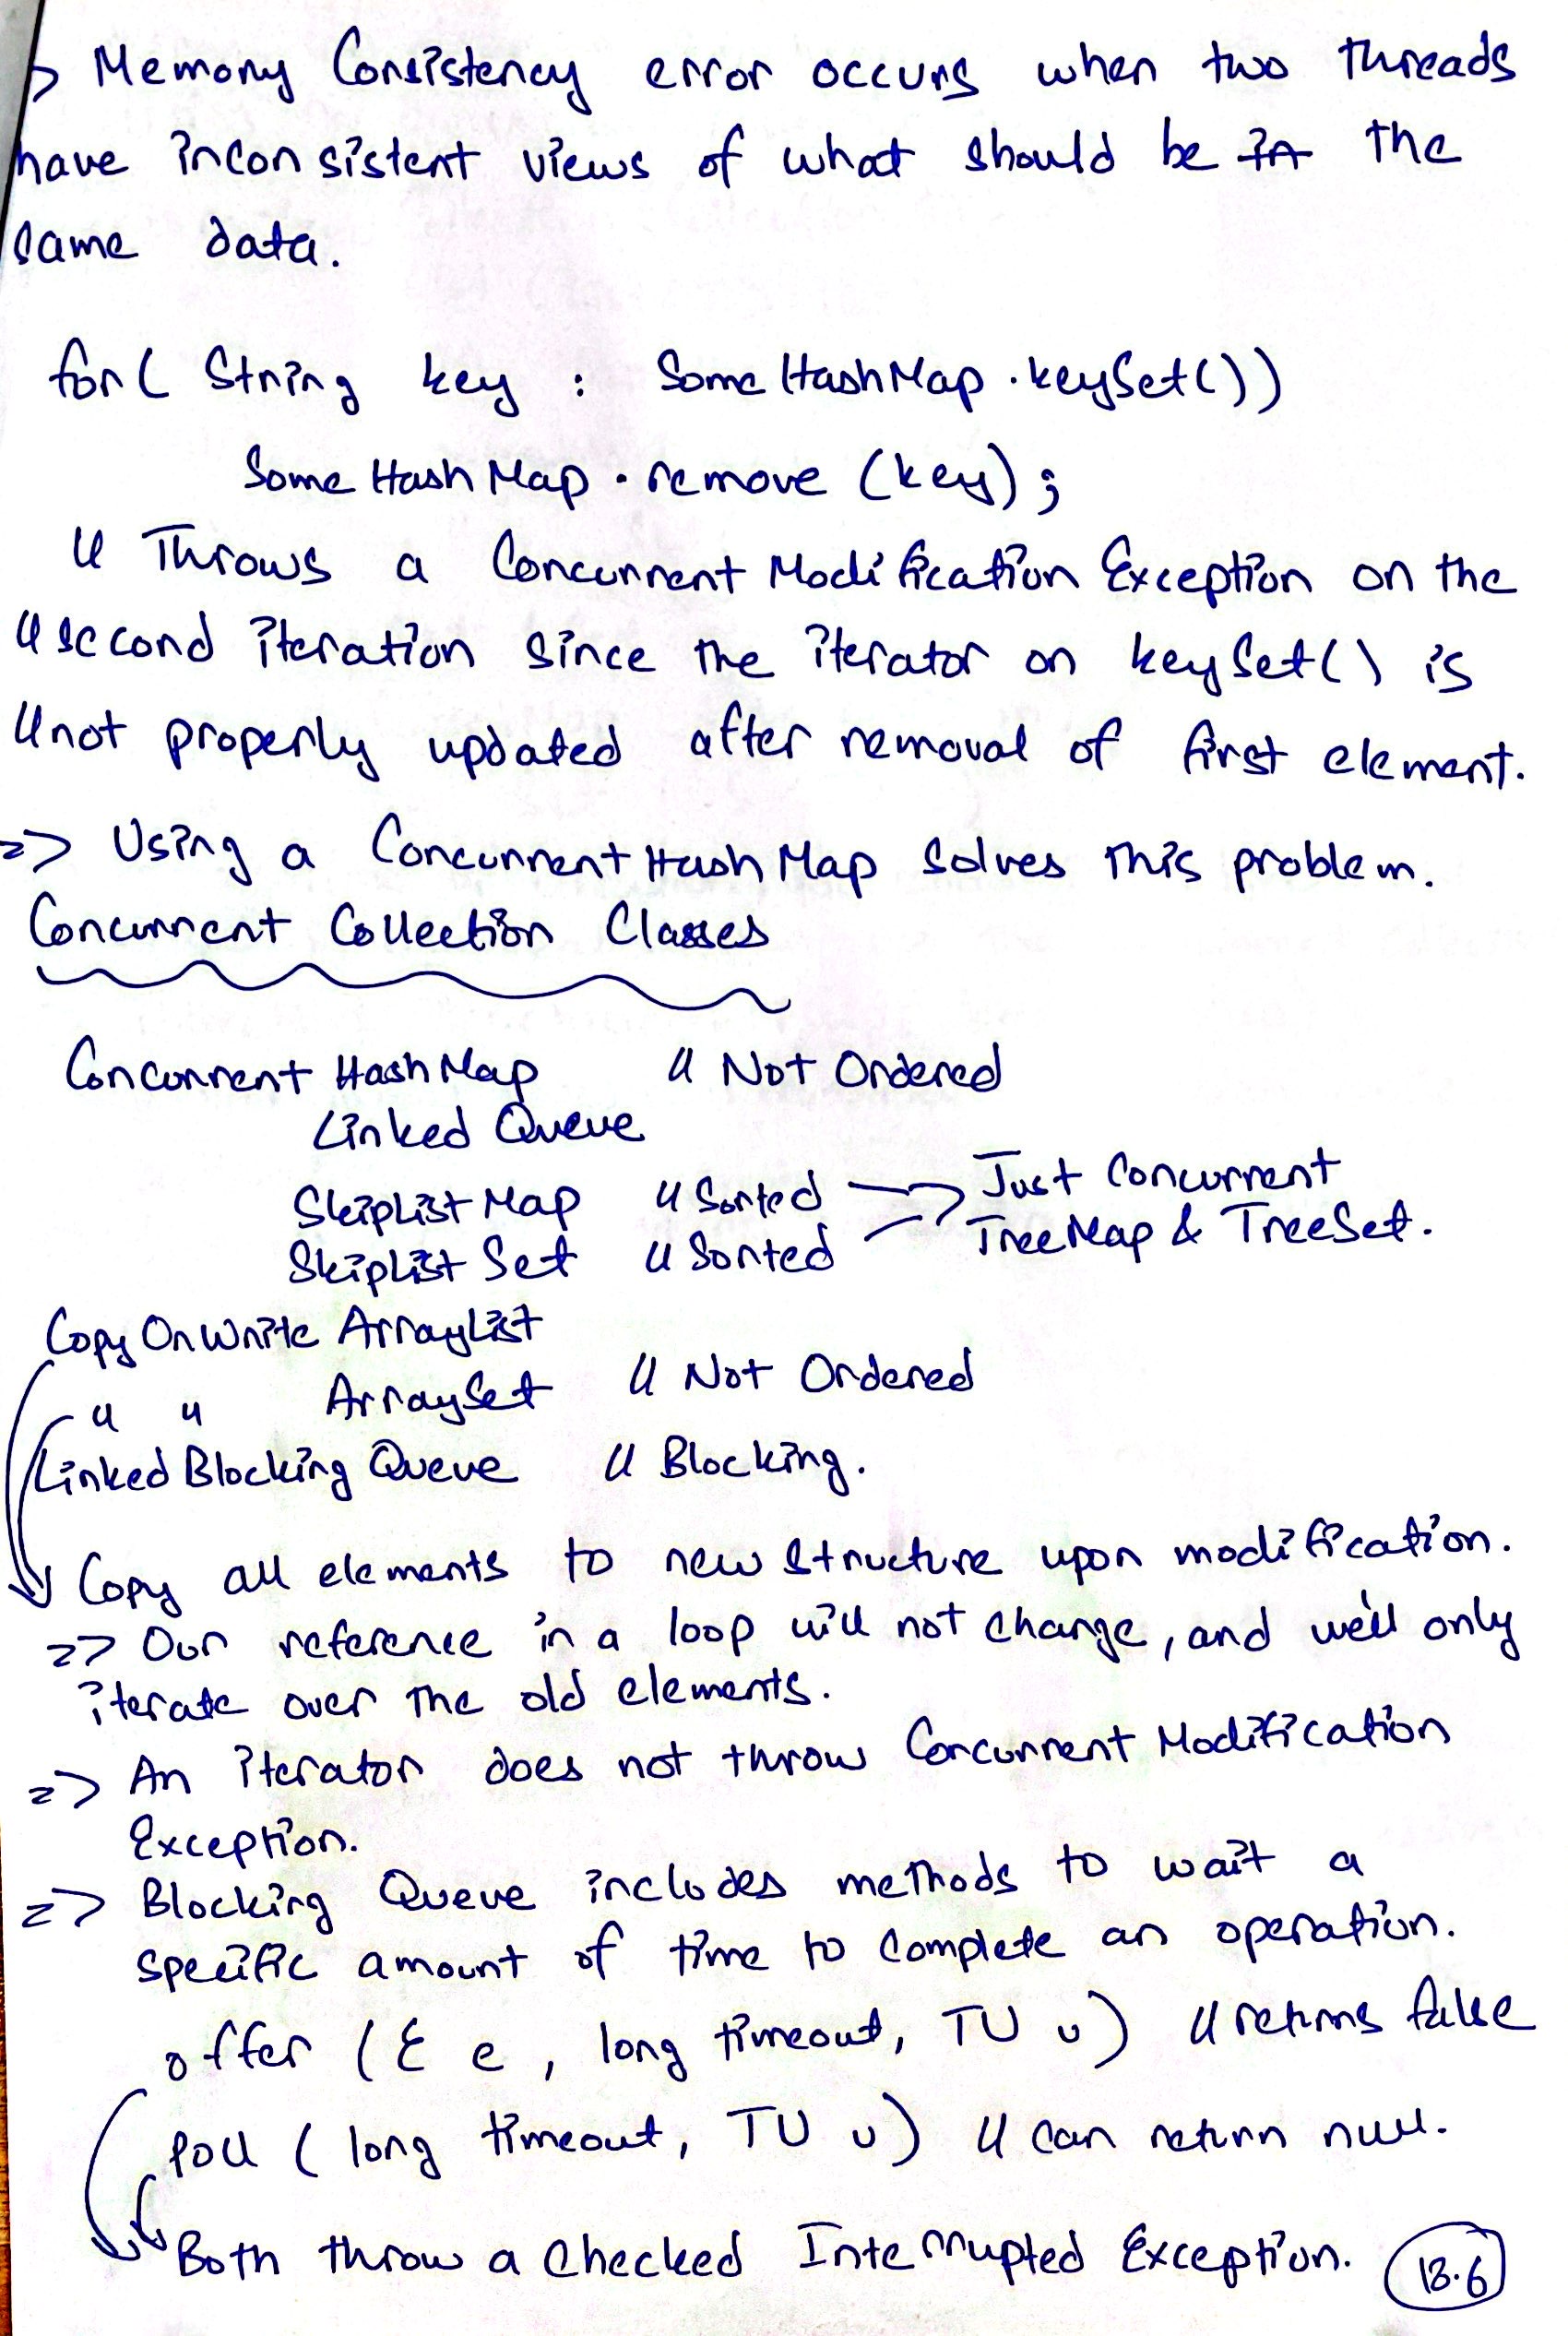 => Memory Consistency error occurs when two threads
have inconsistent views of what should be the
same data.
for( String key : SomeHashMap.keySet())
SomeHashMap.remove(key);
// Throws a ConcurrentModificationException on the
// second iteration since the iterator on keySet() is
// not properly updated after removal of first element.
=> Using a ConcurrentHashMap solves this problem.
Concurrent Collection Classes
ConcurrentHashMap // Not Ordered
LinkedQueue
SkipListMap // Sorted => Just Concurrent
SkipListSet // Sorted TreeMap & TreeSet.
CopyOnWriteArrayList
" " ArraySet // Not Ordered
LinkedBlockingQueue // Blocking.
Copy all elements to new structure upon modification.
=> Our reference in a loop will not change, and we'll only
iterate over the old elements.
=> An iterator does not throw ConcurrentModification
Exception.
=> Blocking Queue includes methods to wait a
specific amount of time to complete an operation.
offer (E e, long timeout, TU u) // returns false
poll (long timeout, TU u) // can return null.
Both throw a checked InterruptedException.
18.6